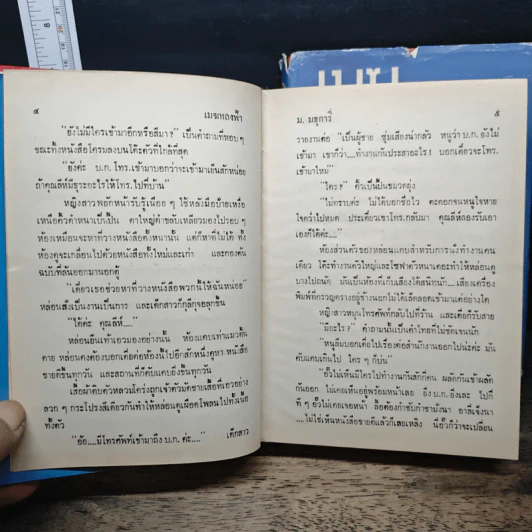 ๔ เมฆหลงฟ้า
"ยังไม่มีใครเข้ามาอีกหรือสีมา?" เป็นคำถามที่หอบๆ
ขณะทิ้งหนังสือโครมลงบนโต๊ะตัวที่ใกล้ที่สุด
"ยังค่ะ บ.ก. โทร.เข้ามาบอกว่าจะเข้ามาเย็นสักหน่อย
ถ้าคุณลีห์มีธุระอะไรให้โทร.ไปที่บ้าน"
หญิงสาวพยักหน้ารับรู้เนือยๆ ใช้หลังมือป้ายเหงื่อ
เหนือคิ้วดำหนาเป็นปื้น ตาใหญ่ดำขลับเหลียวมองไปรอบๆ
ห้องเหมือนจะหาที่วางหนังสือตั้งหนานั้น แต่ก็หาที่ไม่ได้ ทั้ง
ห้องจะเกลื่อนไปด้วยหนังสือทั้งใหม่และเก่า และกองต้น
ฉบับที่ล้นออกมานอกตู้
"เดี๋ยวเธอช่วยหาที่วางหนังสือพวกนี้ให้ฉันหน่อย"
หล่อนสั่งเป็นงานเป็นการ และเด็กสาวก็กุลีกุจอลุกขึ้น
"ได้ค่ะ คุณลีห์...."
หล่อนยืนเท้าเอวมองอย่างนั้น ห้องแคบเท่าแมวดิ้น
ตาย หล่อนคงต้องบอกเตี่ยต่อห้องนี้ไปอีกสักหนึ่งคูหา หนังสือ
ขายดีขึ้นทุกวัน และสถานที่ก็คับแคบยิ่งขึ้นทุกวัน
เสื้อผ้าคับตัวหลวมโคร่งถูกเข้าตัวมัดชายเสื้อที่เอวอย่าง
ลวกๆ กระโปรงสีเดียวกันทำให้หล่อนดูเผือดโพลนไปทั้งเนื้อ
ทั้งตัว
"อ้อ....มีโทรศัพท์เข้ามาถึง บ.ก. ค่ะ...." เด็กสาว
ม. มธุการี ๕
รายงานต่อ "เป็นผู้ชาย ขุ่มเสียงน่ากลัว หนูว่า บ.ก. ยังไม่
เข้ามา เขาก็ว่า....ทำงานกันประสาอะไร! บอกเดี๋ยวจะโทร.
เข้ามาใหม่"
"ใคร?" คิ้วเป็นปื้นขมวดยุ่ง
"ไม่ทราบค่ะ ไม่ได้บอกชื่อไว้ ตะคอกจนหนูใจหาย
ใจคว่ำไปหมด ประเดี๋ยวเขาโทร.กลับมา คุณลีห์ลองรับเอา
เองก็ได้ค่ะ...."
ห้องส่วนตัวของหล่อนแคบสำหรับการนั่งทำงานคน
เดียว โต๊ะทำงานตัวใหญ่และโซฟาตัวหนาเตอะทำให้หล่อนดู
บางไปถนัด มันเป็นห้องที่เก็บเสียงได้สนิทนัก....เสียงเครื่อง
พิมพ์ที่กวัญกรวางอยู่ข้างนอกไม่ได้เล็ดลอดเข้ามาแต่อย่างใด
หญิงสาวหมุนโทรศัพท์กลับไปที่ร้าน และเตี่ยก็รับสาย
"มีอะไร?" คำถามนั้นเป็นคำไทยที่ไม่ชัดเจนนัก
"หนูลืมบอกเตี่ยไปเรื่องต่อสำนักงานออกไปน่ะค่ะ มัน
คับแคบเกินไป ใครๆ ก็บ่น"
"อั๊วไม่เห็นมีใครไปทำงานกันสักกี่คน ผลัดกันเข้าผลัด
กันออก ไม่เคยเห็นอยู่พร้อมหน้าเลย ยิ่ง บ.ก. ยิ่งเละ ไปกี่
ทีๆ อั๊วไม่เคยเจอหน้า ลื้อต้องกำชับกำชามั่งนา อาลีเจ้งนา
....ไม่ใช่เห็นหนังสือขายดีแล้วก็เลยเหลิง นี่อั๊วก็ว่าจะเปลี่ยน